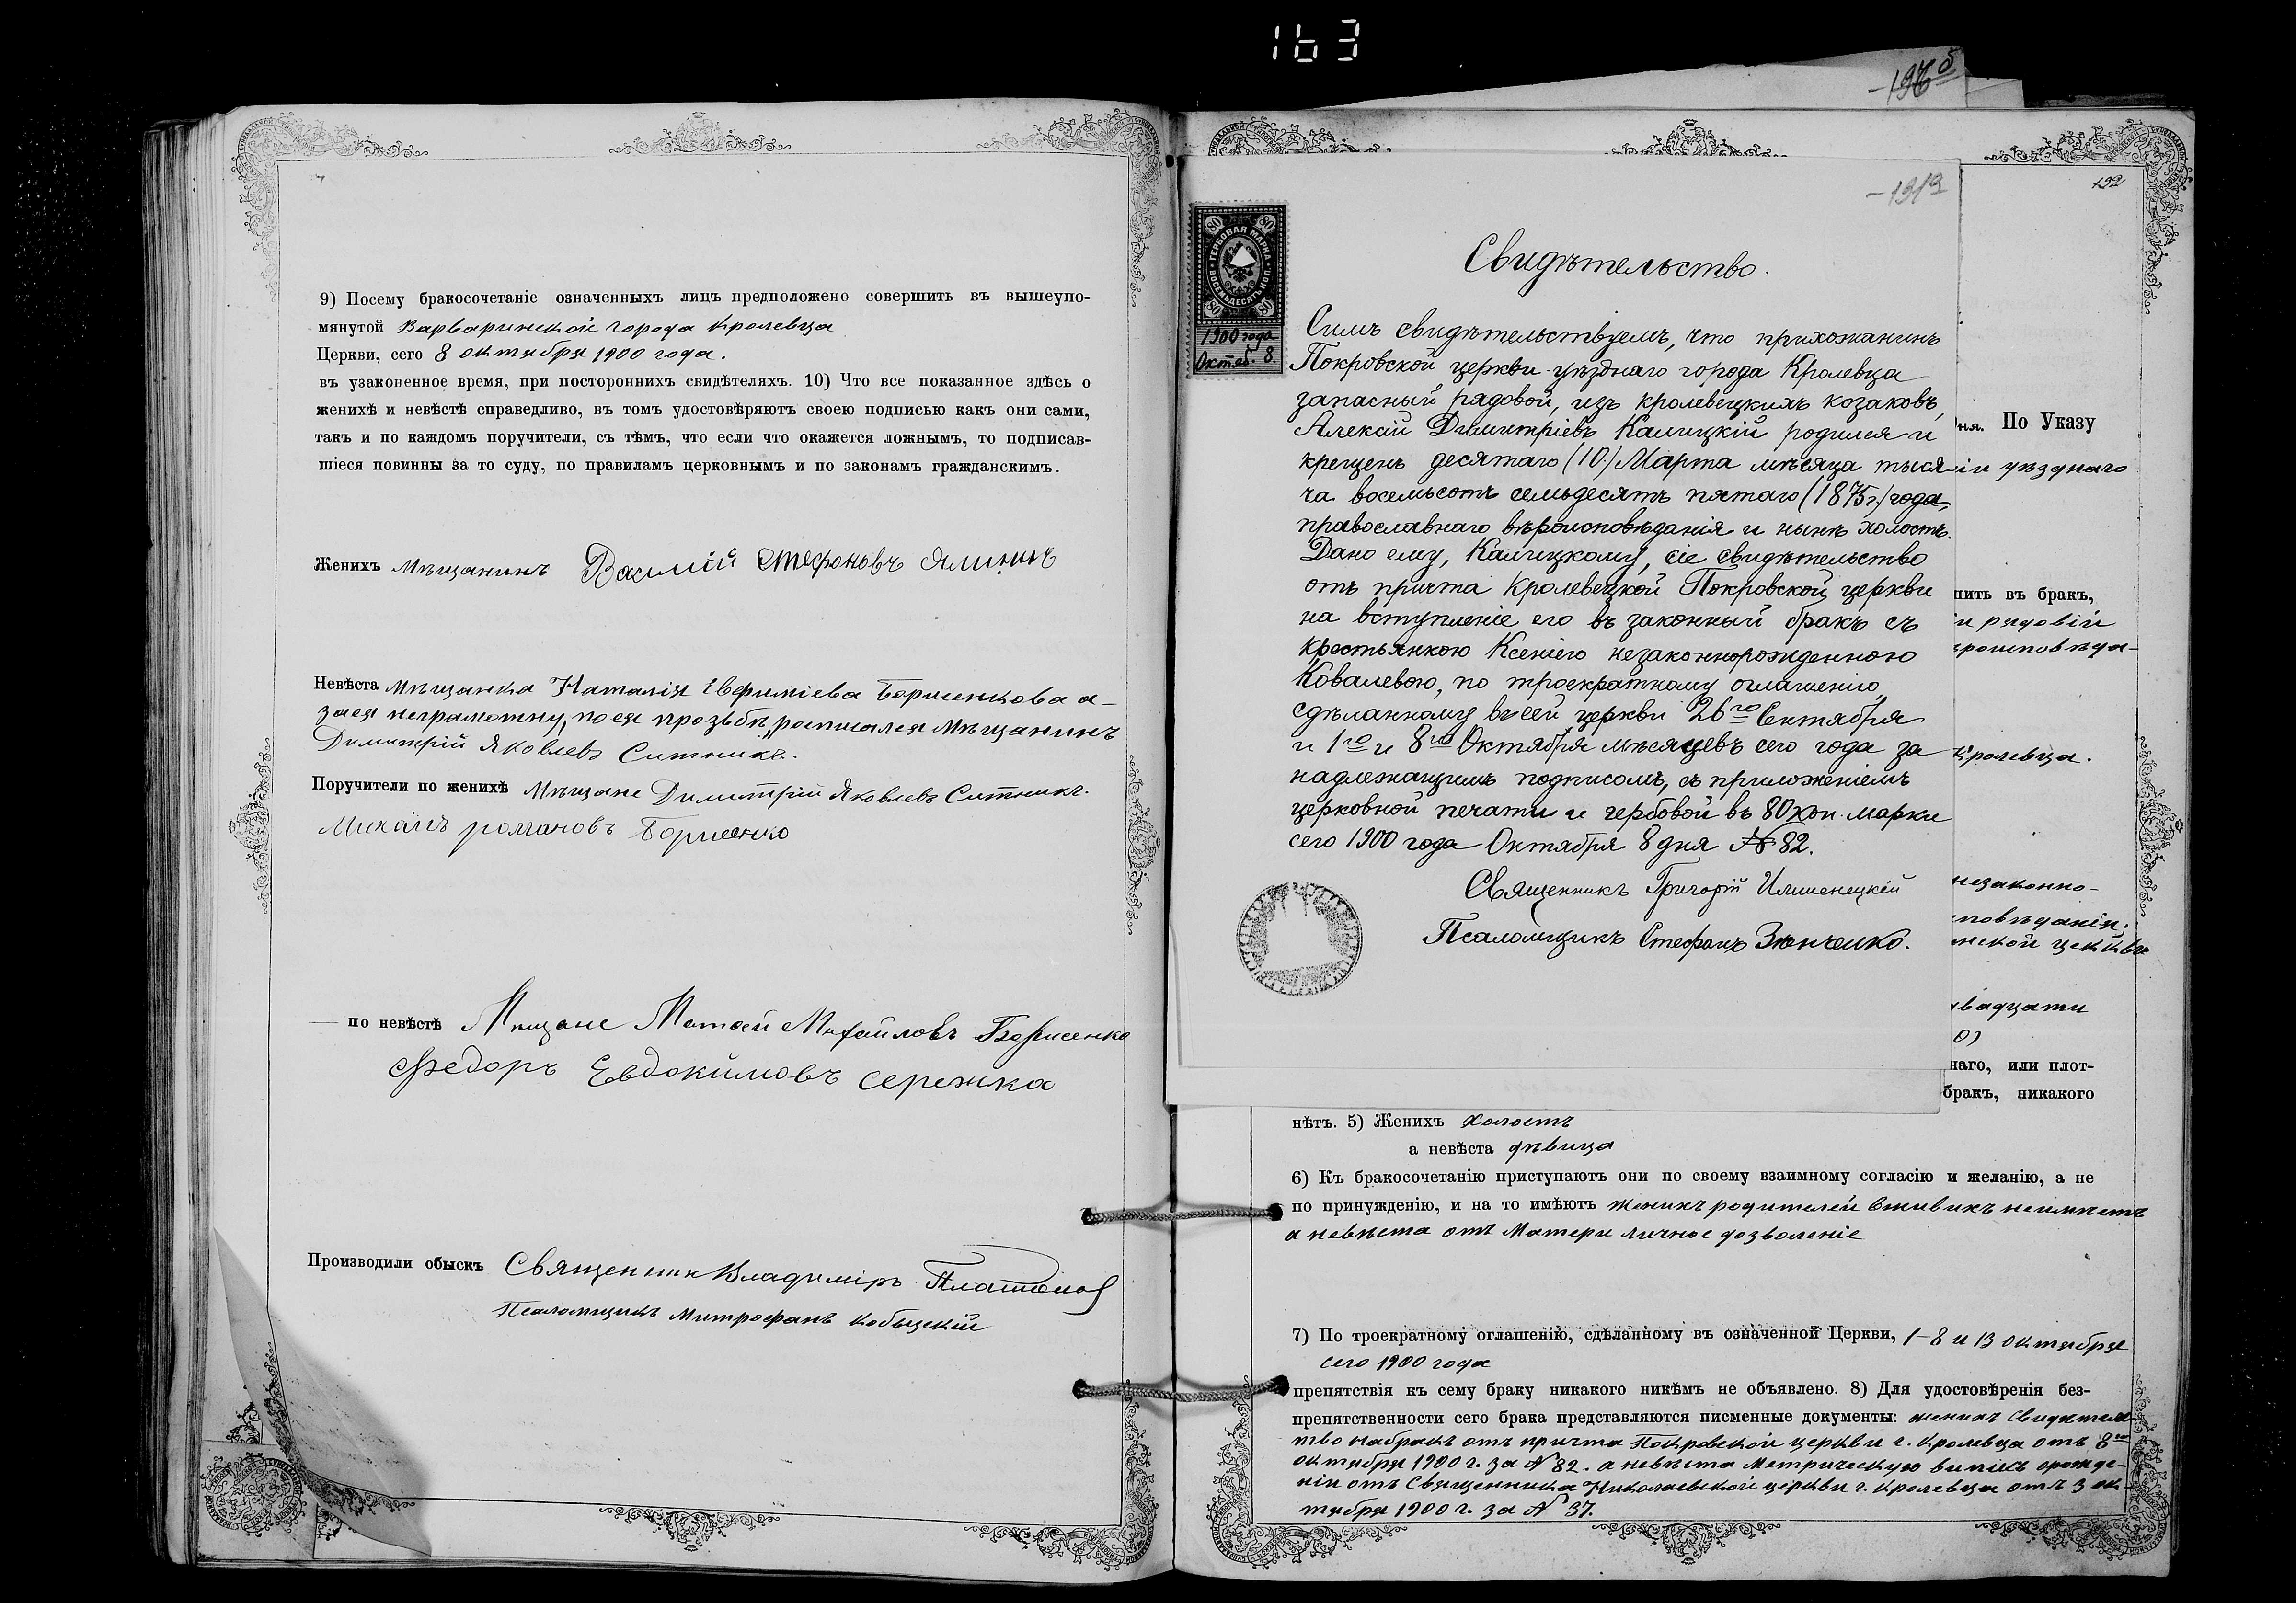 163
9) Посему бракосочетаніе означенныхъ лицъ предположено совершить въ вышеупо-
мянутой Варваринской города Кролевца
Церкви, сего 8 октября 1900 года.
въ узаконенное время, при постороннихъ свидѣтеляхъ. 10) Что все показанное здѣсь о
женихѣ и невѣстѣ справедливо, въ томъ удостовѣряютъ своею подписью какъ они сами,
такъ и по каждомъ поручители, съ тѣмъ, что если что окажется ложнымъ, то подписав-
шіеся повинны за то суду, по правиламъ церковнымъ и по законамъ гражданскимъ.
Женихъ Мѣщанинъ Василій Стефоновъ
Невѣста Мѣщанка Наталія Евфиміева Борисенкова а-
за ея неграмотну, по ея прозьбѣ, росписался Мѣщанинъ
Димитрій Яковлевъ Ситникъ.
Поручители по женихѣ Мѣщане Димитрій Яковлевъ Ситникъ.
Михаилъ романовъ Борисенко
по невѣстѣ Мѣщане Матѳей Михайловъ Борисенко
Федоръ Евдокимовъ Сережка
Производили обыскъ Священникъ Владиміръ Платоновъ
Псаломщикъ Митрофанъ Кобыцкій
192
ГЕРБОВАЯ МАРКА
ВОСЕМЬДЕСЯТЬ КОП.
80
1900 года
Октяб. 8.
Свидѣтельство.
Симъ свидѣтельствуемъ, что прихожанинъ
Покровской церкви уѣзднаго города Кролевца
запасный рядовой, изъ кролевецкихъ козаковъ,
Алексій Димитріевъ Калицкій родился и
крещенъ десятаго (10) Марта мѣсяца тыся-
ча восемьсотъ семьдесятъ пятаго (1875 г.) года,
православнаго вѣроисповѣданія и нынѣ холостъ.
Дано ему, Калицкому, сіе свидѣтельство
отъ причта Кролевецкой Покровской церкви
на вступленіе его въ законный бракъ съ
крестьянкою Ксеніею незаконнорожденною
Ковалевою, по троекратному оглашенію,
сдѣланному въ сей церкви 26го Сентября
и 1го и 8го Октября мѣсяцевъ сего года за
надлежащимъ подписомъ, съ приложеніемъ
церковной печати и гербовой въ 80 коп. марки
сего 1900 года Октября 8 дня № 82.
Священникъ Григорій
Псаломщикъ Стефанъ Зюнченко.
дня. По Указу
уѣзднаго
пить въ бракъ,
рядовій
роисповѣда-
Кролевца.
незаконно-
повѣданія.
нской церкви
двадцати
наго, или плот-
бракъ, никакого
нѣтъ. 5) Женихъ холостъ
а невѣста дѣвица
6) Къ бракосочетанію приступаютъ они по своему взаимному согласію и желанію, а не
по принужденію, и на то имѣютъ женихъ родителей вживыхъ неимѣетъ
а невѣста отъ Матери личное дозволеніе
7) По троекратному оглашенію, сдѣланному въ означенной Церкви, 1-8 и 13 октября
сего 1900 года
препятствія къ сему браку никакого никѣмъ не объявлено. 8) Для удостовѣренія без-
препятственности сего брака представляются писменные документы: женихъ свидѣтель-
тво набракъ отъ причта Покровской церкви г. Кролевца отъ 8го
октября 1900 г. за № 82. а невѣста Метрическую выпись орожде-
ніи отъ Священника Николаевской церкви г. Кролевца отъ 3 ок-
тября 1900 г. за № 37.